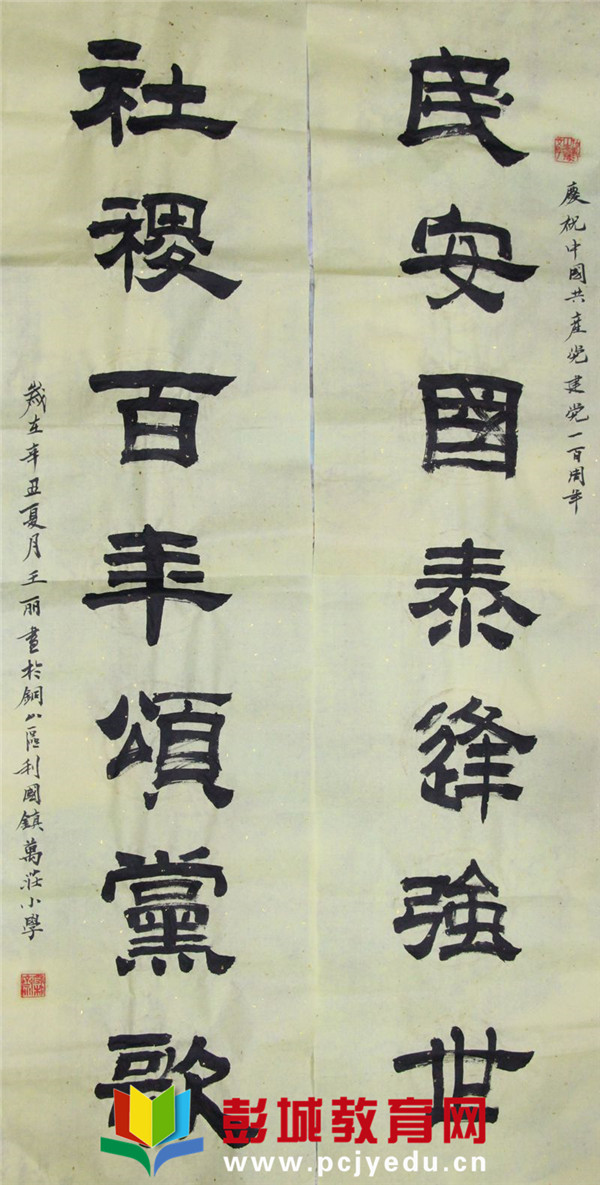 慶祝中國共產党建党一百周年
民安國泰逢強世
社稷百年頌黨歌
歲在辛丑夏月王丽書於銅山區利國鎮萬莊小學
彭城教育网
www.pcjyedu.cn